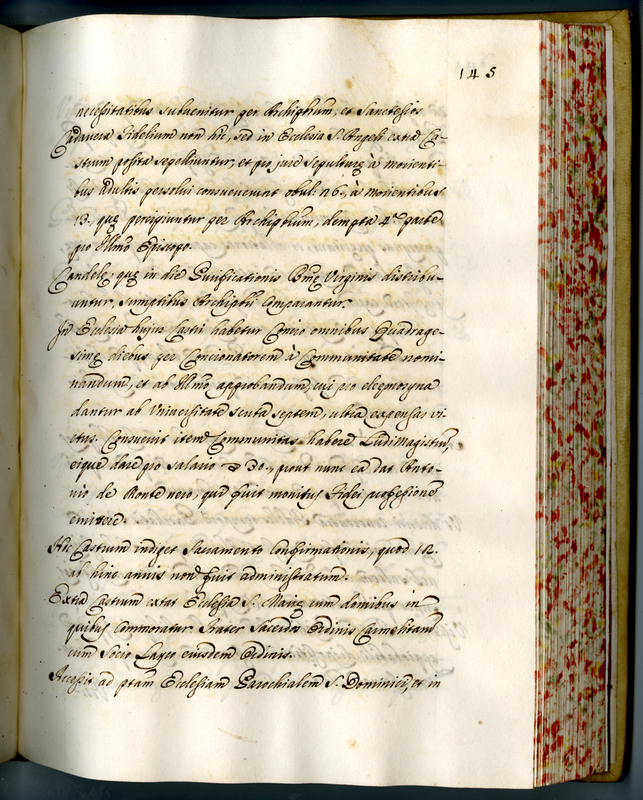 145
necessitatibus subvenitur per Archipbrum, et Sanctesios
Cadavera Fidelium non hic, sed in Ecclesia S. Angeli extra Ca-
strum posita sepelliuntur, et pro jure sepulturę à morienti-
bus Adultis persolui consueverunt obul: 26., à Morientibus
13. quę percipiuntur per Archipbrum, dempta 4.ª parte
pro Illmo Episcopo.
Candelę, quę in die Purificationis Bmę Virginis distribu-
untur, sumptibus Archipbri comparantur.
In Ecclesia hujus Castri habetur Concio omnibus Quadrage-
simę diebus per Concionatorem à Communitate nomi-
nandum, et ab Illmo approbandum, cui pro eleemosyna
dantur ab Universitate scuta septem, ultra expensas vi-
ctus. Consuevit item Communitas habere LudiMagistrum,
eique dare pro salario 30., prout nunc ea dat Anto-
nio de Monte nero, qui fuit monitus Fidei professione
emittere.
Hoc Castrum indiget Sacramento Confirmationis, quod 12.
ab hinc annis non fuit administratum.
Extra Castrum extat Ecclesia S. Marię cum domibus in
quibus Commoratur Frater Sacerdos Ordinis Carmelitani
cum Socio Layco eiusdem Ordinis.
Accessit ad ptam Ecclesiam Parochialem S. Dominici, et in